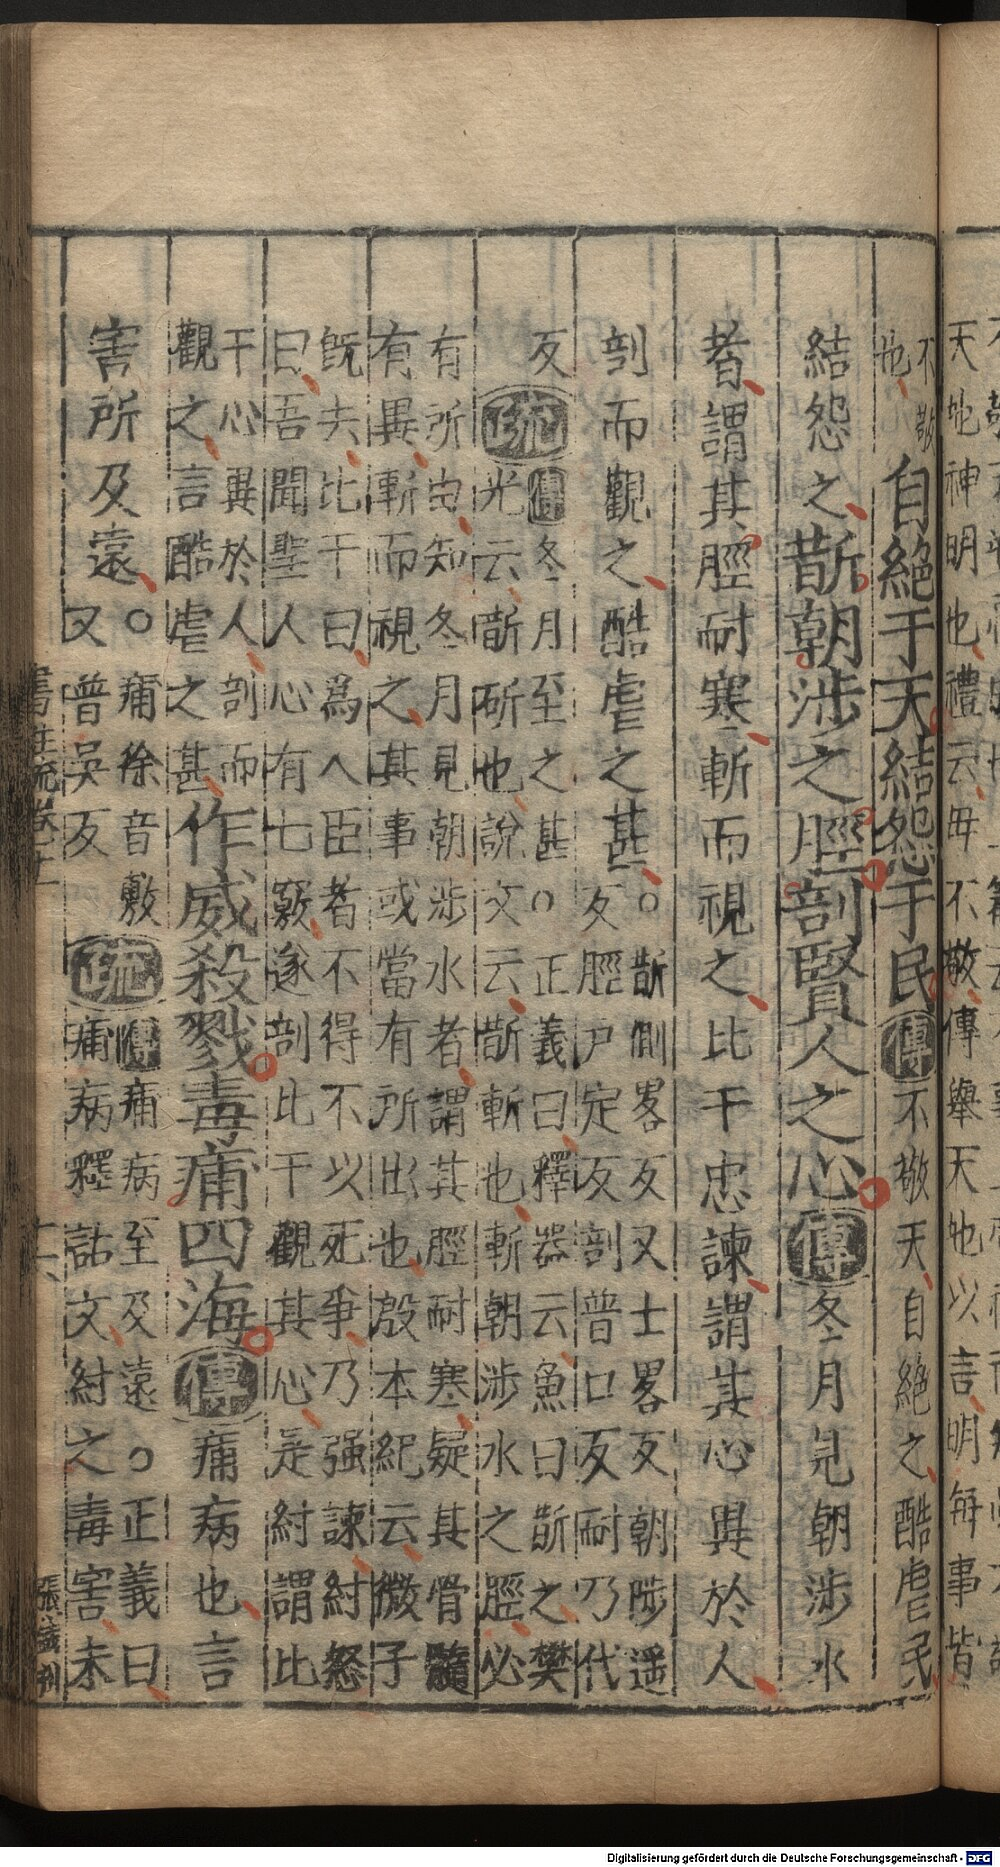 天地神明也禮云毋不敬傳舉天地以言明每事皆
不敬
也
自絕于天結怨于民傳不敬天自絕之酷虐民
結怨之斮朝涉之脛剖賢人之心傳冬月見朝涉水
者謂其脛耐寒斬而視之比干忠諫謂其心異於人
剖而觀之酷虐之甚○
斮側畧反又士畧反朝陟遥
反脛戶定反剖普口反耐乃代
反
疏
傳冬月至之甚○正義曰釋器云魚曰斮之樊
光云斮斫也說文云斮斬也斬朝涉水之脛必
有所由知冬月見朝涉水者謂其脛耐寒疑其骨髓
有異斬而視之其事或當有所出也殷本紀云微子
旣去比干曰爲人臣者不得不以死爭乃强諫紂怒
曰吾聞聖人心有七竅遂剖比干觀其心是紂謂比
干心異於人剖而
觀之言酷虐之甚
作威殺戮毒痡四海傳痡病也言
害所及遠○
痡徐音敷
又普吳反
疏
傳痡病至及遠○正義曰
痡病釋詁文紂之毒害未
書注疏卷十一
十六
刋
Digitalisierung gefördert durch die Deutsche Forschungsgemeinschaft - DFG